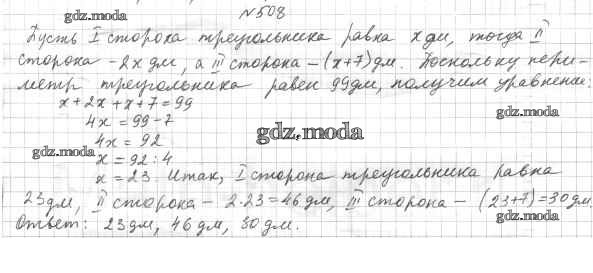 №508
gdz.moda
Пусть I сторона треугольника равна x дм, тогда II
сторона - 2x дм, а III сторона - (x+7) дм. Поскольку пери-
метр треугольника равен 99 дм, получим уравнение:
gdz.moda
x + 2x + x + 7 = 99
gdz.moda
4x = 99 - 7
gdz.moda
4x = 92
gdz.moda
x = 92 : 4
x = 23. Итак, I сторона треугольника равна
23 дм, II сторона - 2·23 = 46 дм, III сторона - (23+7) = 30 дм.
gdz.moda
Ответ: 23 дм, 46 дм, 30 дм.